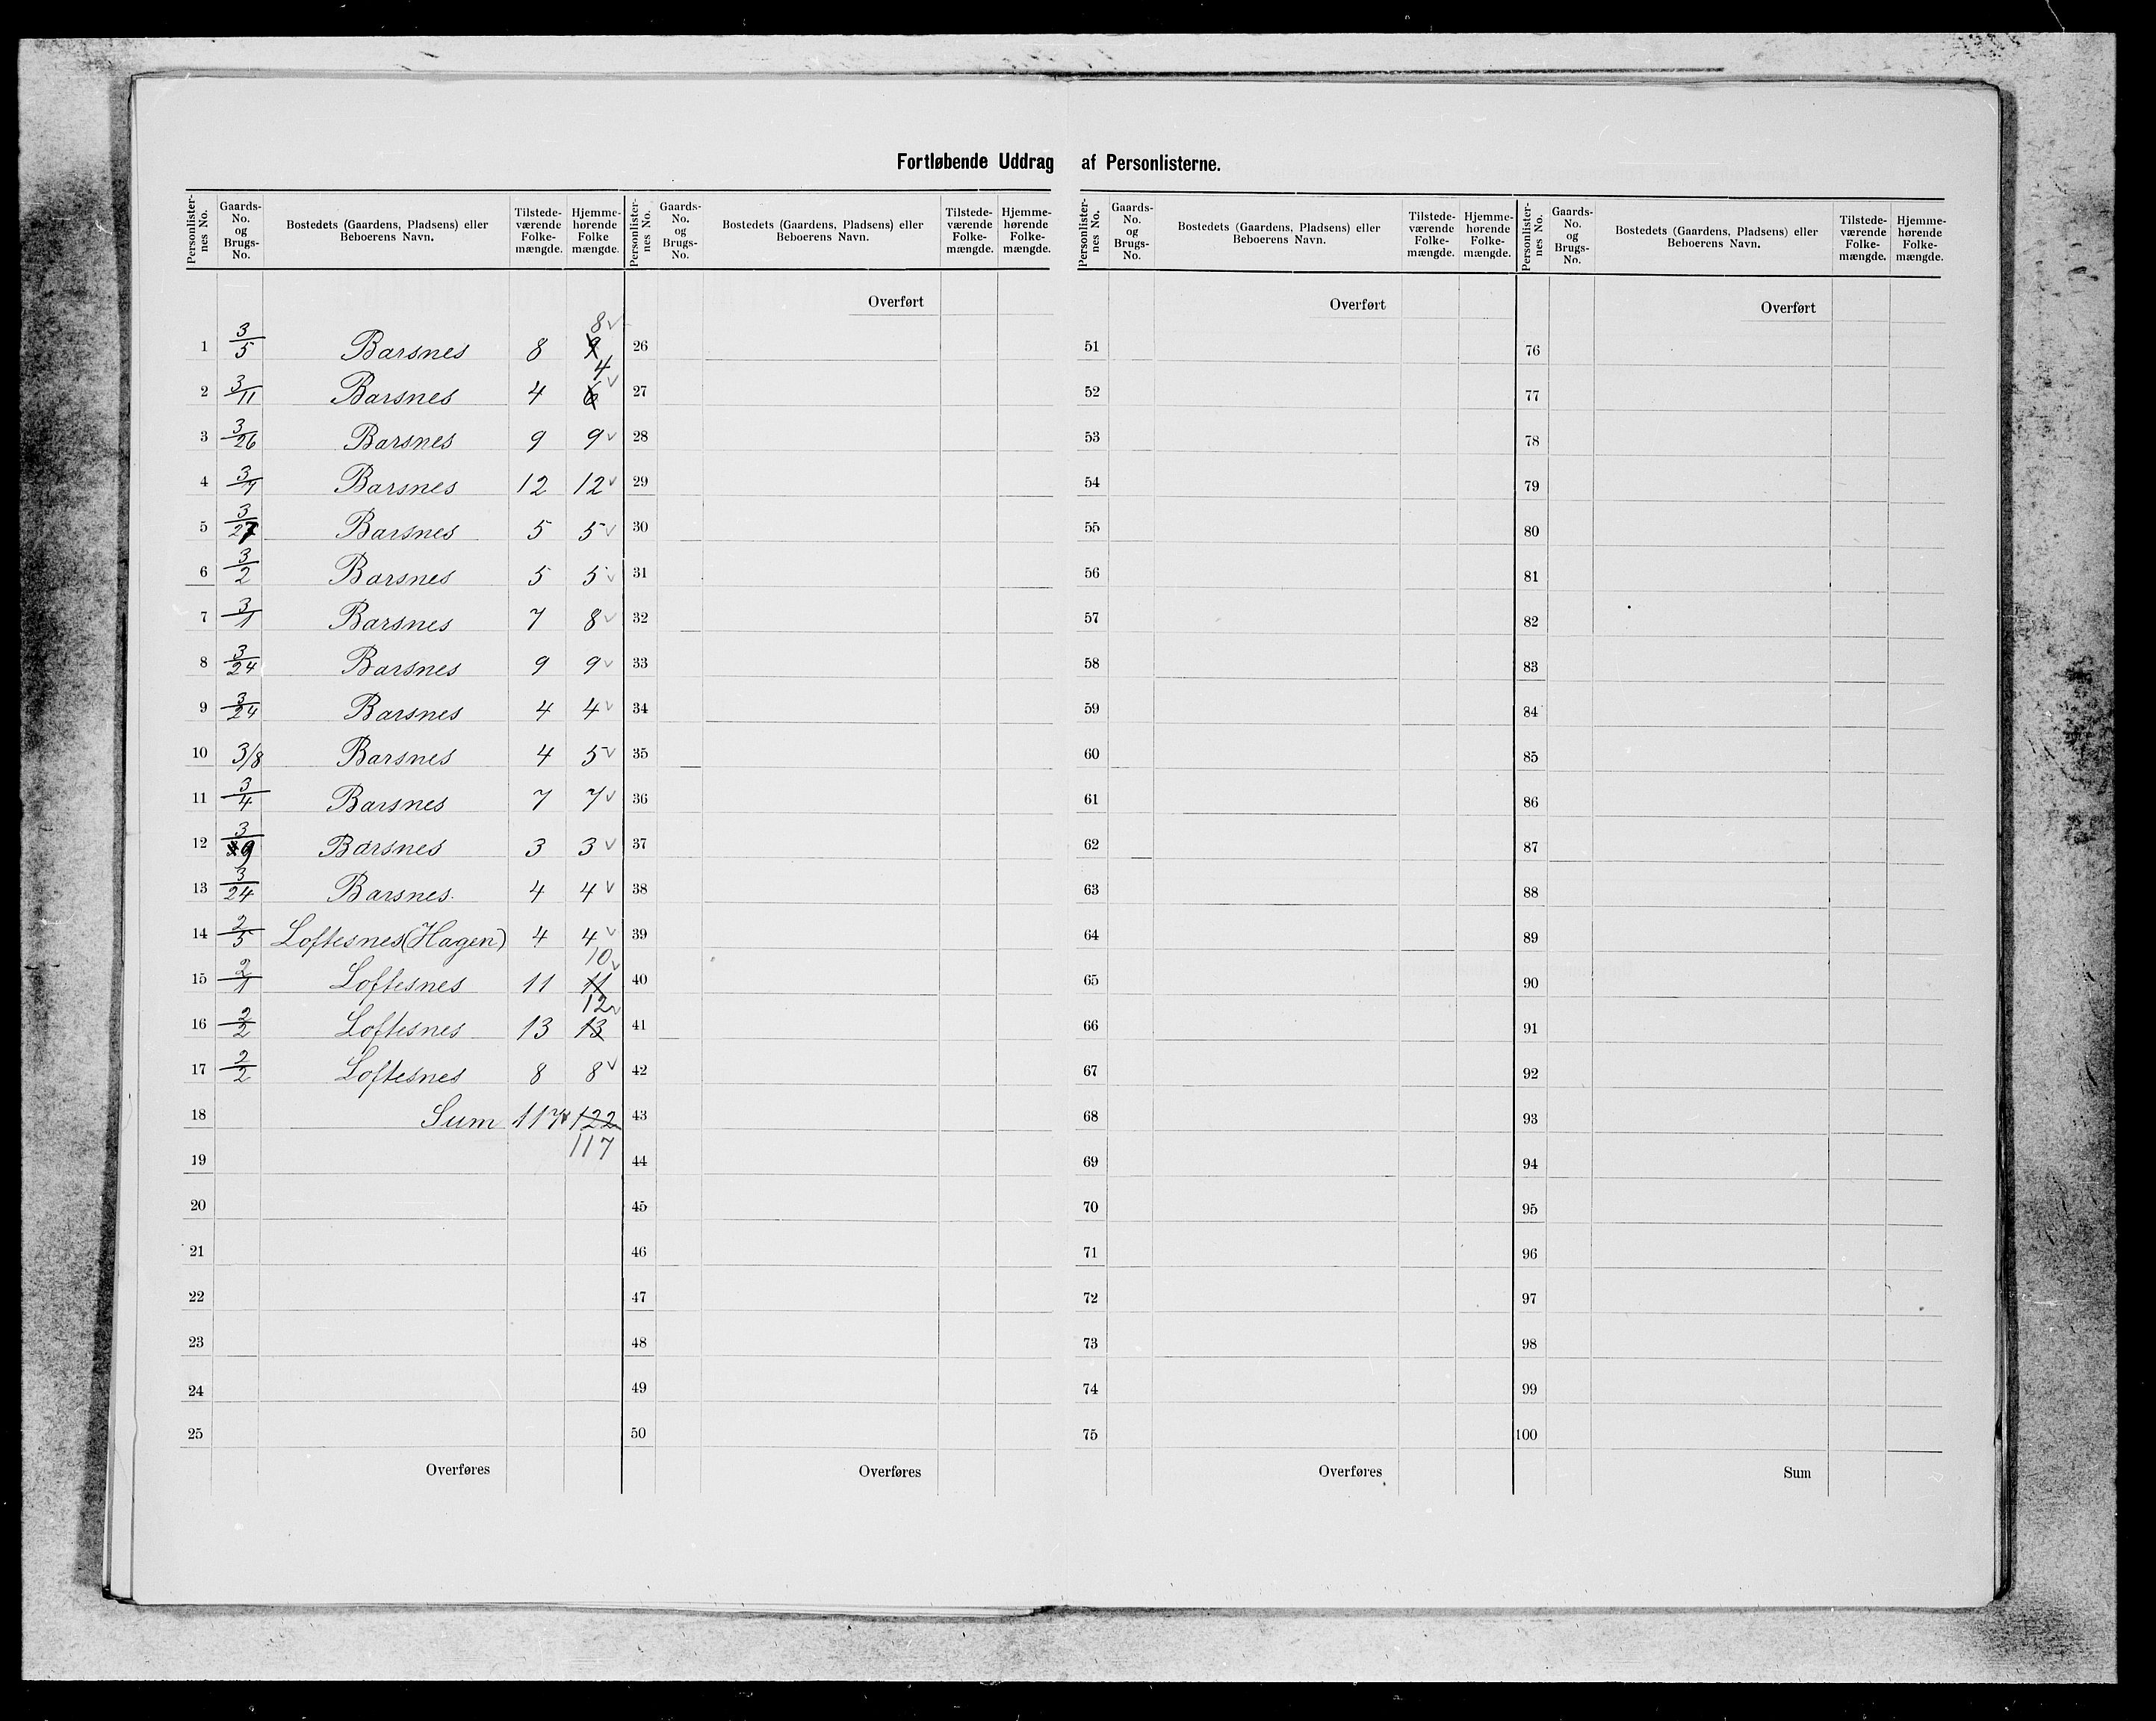 Fortløbende Uddrag af Personlisterne.
Personlisternes No. Gaards-No. og Brugs-No. Bostedets (Gaardens, Pladsens) eller Beboerens Navn. Tilstedeværende Folkemængde. Hjemmehørende Folkemængde.
Personlisternes No. Gaards-No. og Brugs-No. Bostedets (Gaardens, Pladsens) eller Beboerens Navn. Tilstedeværende Folkemængde. Hjemmehørende Folkemængde.
Personlisternes No. Gaards-No. og Brugs-No. Bostedets (Gaardens, Pladsens) eller Beboerens Navn. Tilstedeværende Folkemængde. Hjemmehørende Folkemængde.
Personlisternes No. Gaards-No. og Brugs-No. Bostedets (Gaardens, Pladsens) eller Beboerens Navn. Tilstedeværende Folkemængde. Hjemmehørende Folkemængde.
Overført Overført Overført
1 3/5 Barsnes 8 9 8 26 51 76
2 3/11 Barsnes 4 6 4 27 52 77
3 3/26 Barsnes 9 9 28 53 78
4 3/7 Barsnes 12 12 29 54 79
5 3/27 Barsnes 5 5 30 55 80
6 3/2 Barsnes 5 5 31 56 81
7 3/1 Barsnes 7 8 32 57 82
8 3/24 Barsnes 9 9 33 58 83
9 3/24 Barsnes 4 4 34 59 84
10 3/8 Barsnes 4 5 35 60 85
11 3/4 Barsnes 7 7 36 61 86
12 3/9 Barsnes 3 3 37 62 87
13 3/24 Barsnes. 4 4 38 63 88
14 2/5 Loftesnes (Hagen) 4 4 39 64 89
15 2/1 Loftesnes 11 11 10 40 65 90
16 2/2 Loftesnes 13 13 12 41 66 91
17 2/2 Loftesnes 8 8 42 67 92
18 Sum 117 122 43 68 93
117
19 44 69 94
20 45 70 95
21 46 71 96
22 47 72 97
23 48 73 98
24 49 74 99
25 50 75 100
Overføres Overføres Overføres Sum